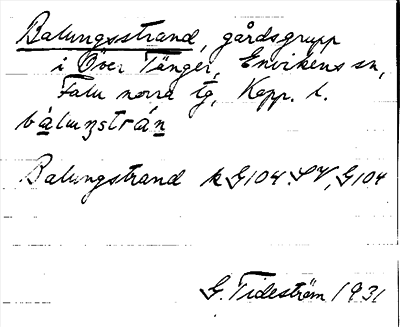 Balungsstrand, gårdsgrupp
i Över Tänger, Envikens sn,
Falu norra tg, Kopp. l.
bàluŋstrán
Balungstrand k G104 SV, G104
G. Tideström 1931